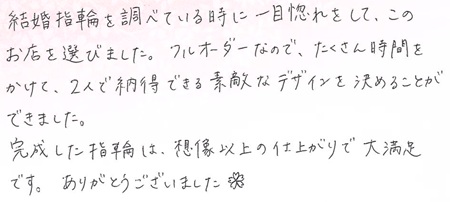 結婚指輪を調べている時に一目惚れをして、この
お店を選びました。フルオーダーなので、たくさん時間を
かけて、2人で納得できる素敵なデザインを決めることが
できました。
完成した指輪は、想像以上の仕上がりで大満足
です。ありがとうございました